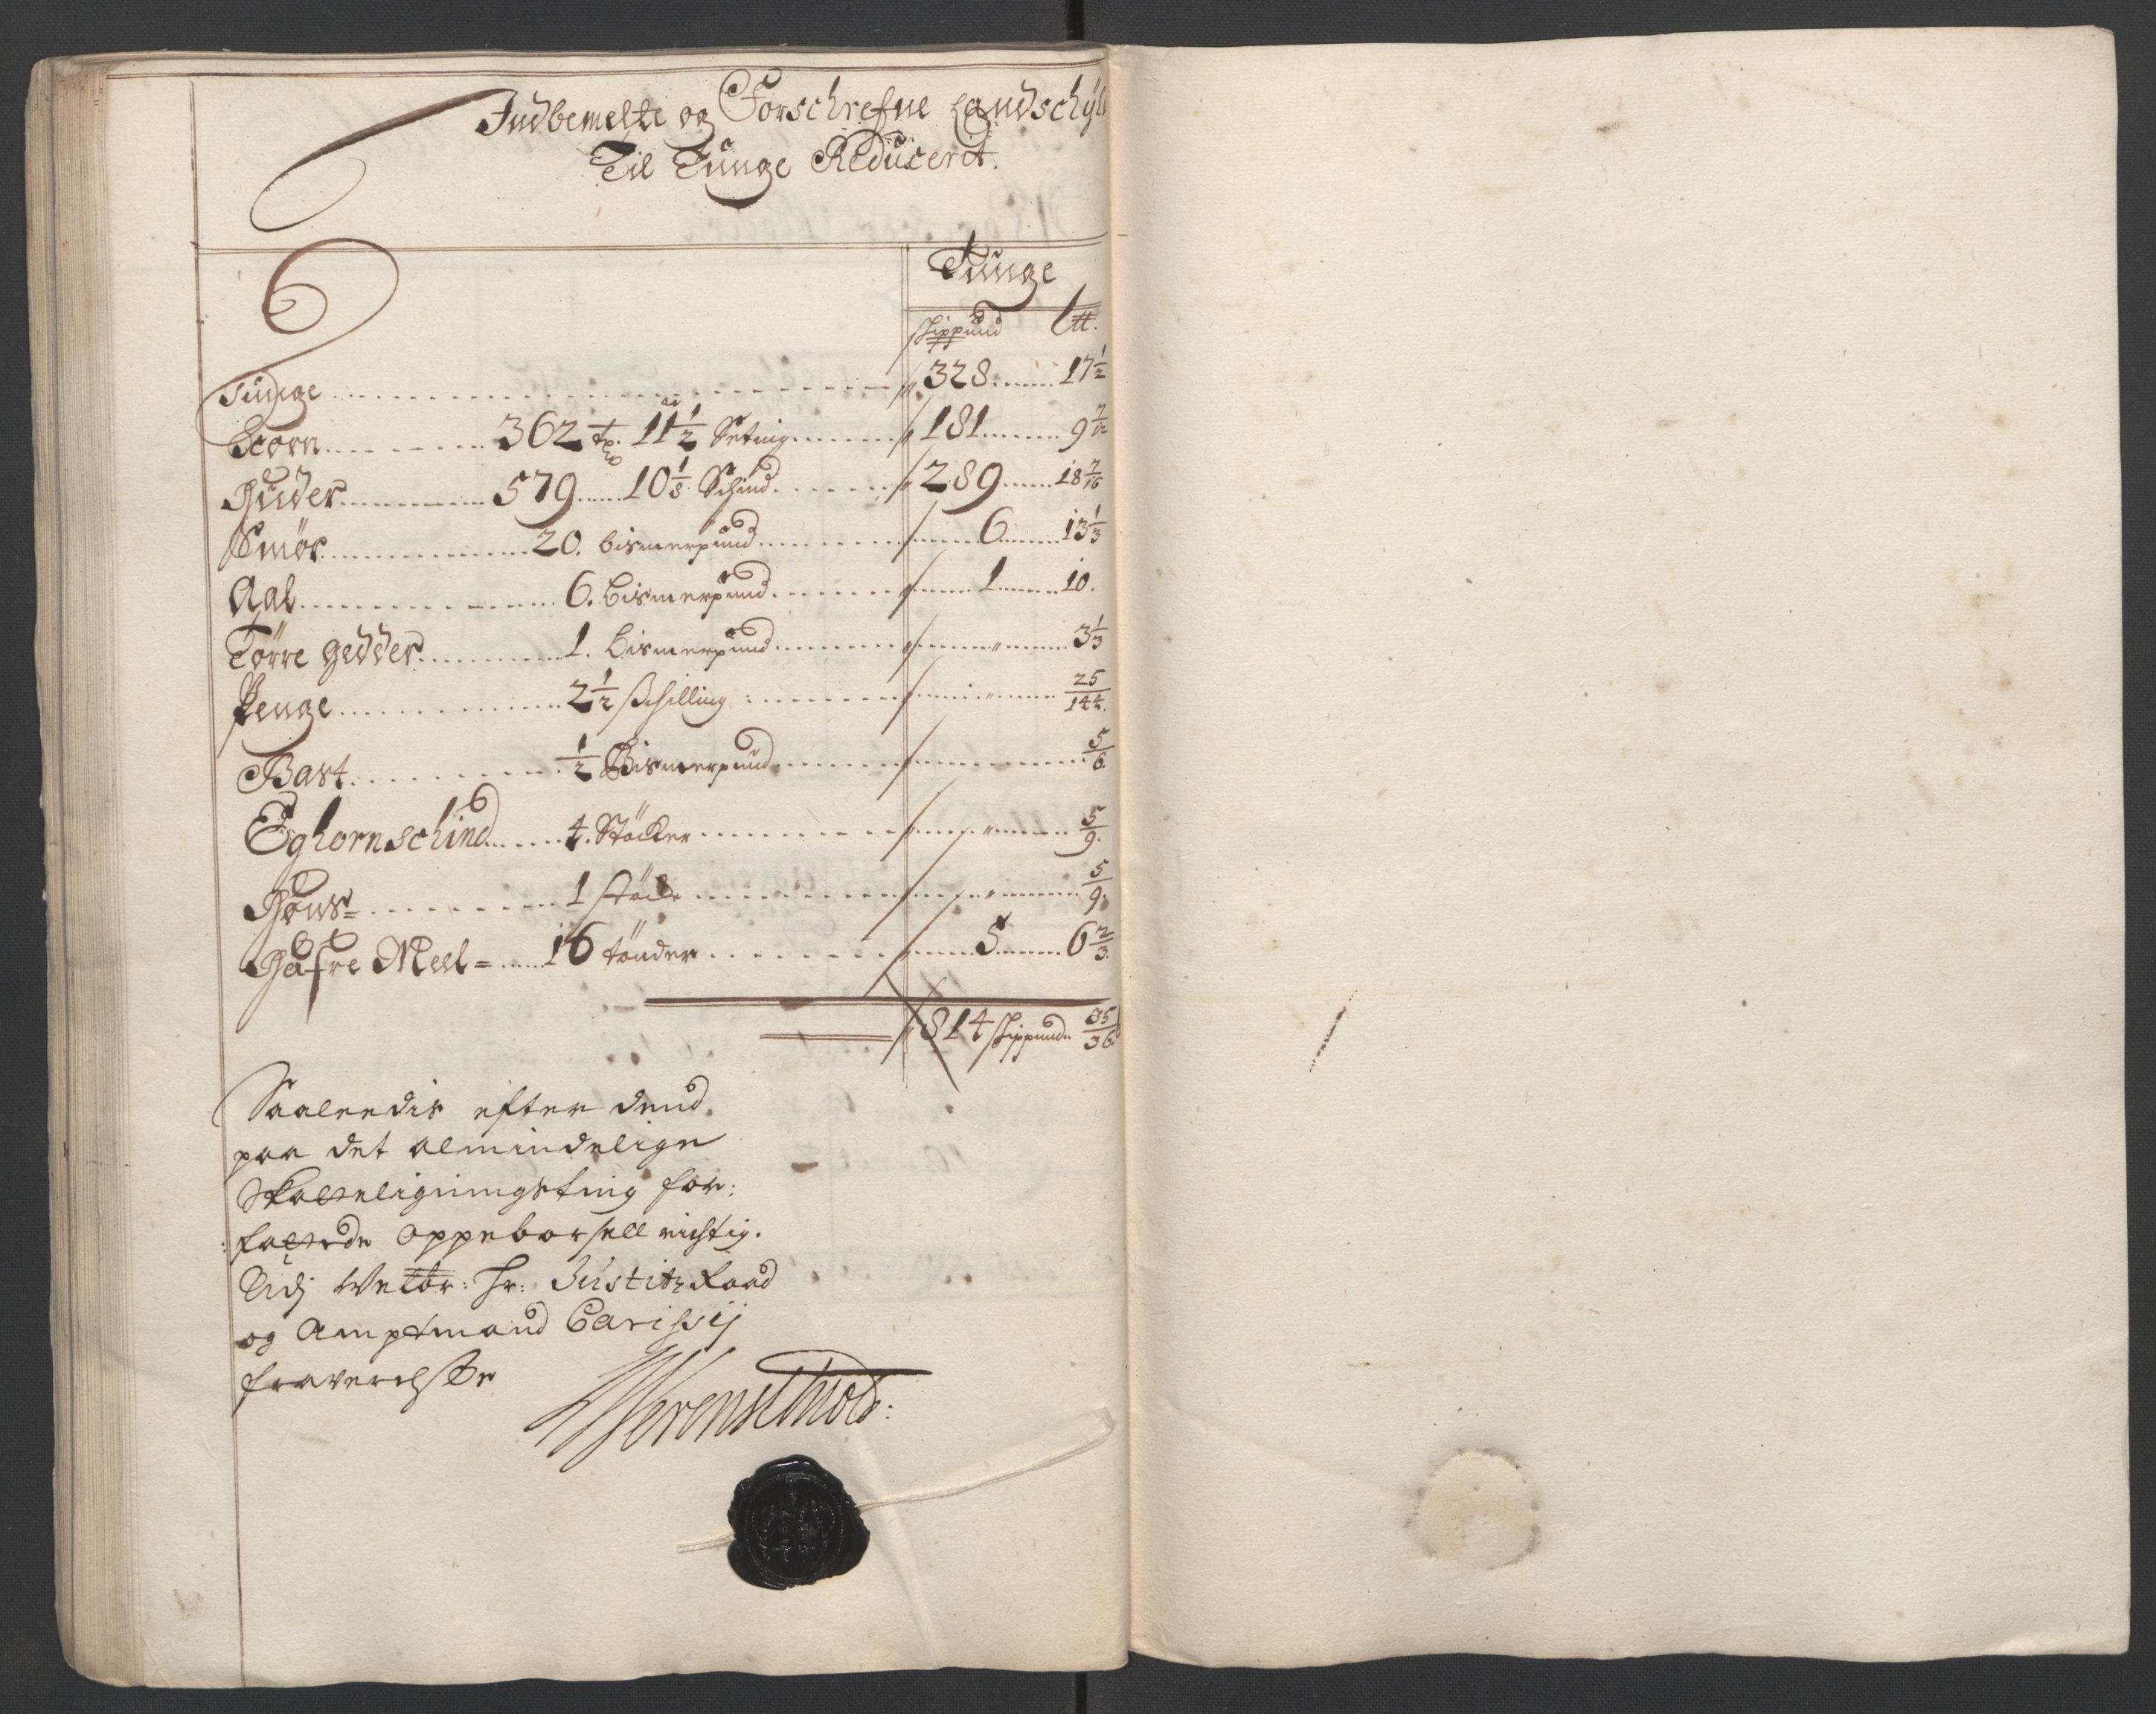 Indbemelte og Forschrefne Landschÿl
Til Tunge Reduceret.
Tunge
schippund L℔.
Tunge 328 17 1/2
Korn 362 tr. 11 1/2 Setting 181 9 7/12
Huder 579 10 1/8 Schind 289 18 7/16
Smør 20. bismerpund 6 13 1/3
Aal 6. bismerpund 1 10.
Tørre gedder 1. bismerpund " 3 1/3
Penge 2 1/2 schilling " 25/144.
Bast 1/2 Bismerpund 5/6.
Eghornschind 4. Støcker " 5/9.
Høns= 1 støck " 5/9.
Hafre Meel= 16 tønder 5 6 2/3.
814 schippund 35/36
Saaleedis efter dend
paa det almindelige
Skatteligningsting for:
:fattede Oppeborsell rigtig.
Udj Welbr: Hr: Justitz Raad
og Amptmand Carisij
fraverelsse